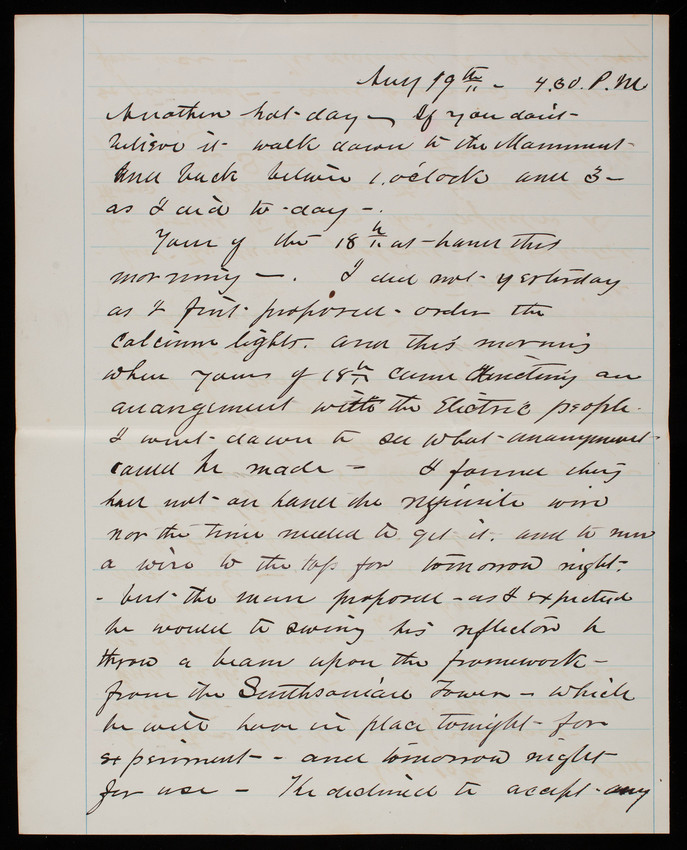 Aug 19th - 4.30. P.M
Another hot-day - If you don't
believe it walk down to the Monument
and back betwen 1. o'clock and 3 -
as I did to-day -.
Yours of the 18th at-hand this
morning -. I did not yesterday
as I first proposed - order the
Calcium lights. and this morning
when yours of 18th came directing an
arrangement with the Electric people.
I went down to see what arrangement
could be made - I found they
had not on hand the requisite wire
nor the time needed to get it. and to run
a wire to the top for tomorrow night.
- but the man proposed - as I expected
he would to swing his reflector &
throw a beam upon the framework -
from the Smithsonian Tower - which
he will have in place tonight for
experiment - - and tomorrow night
for use - He declined to accept any